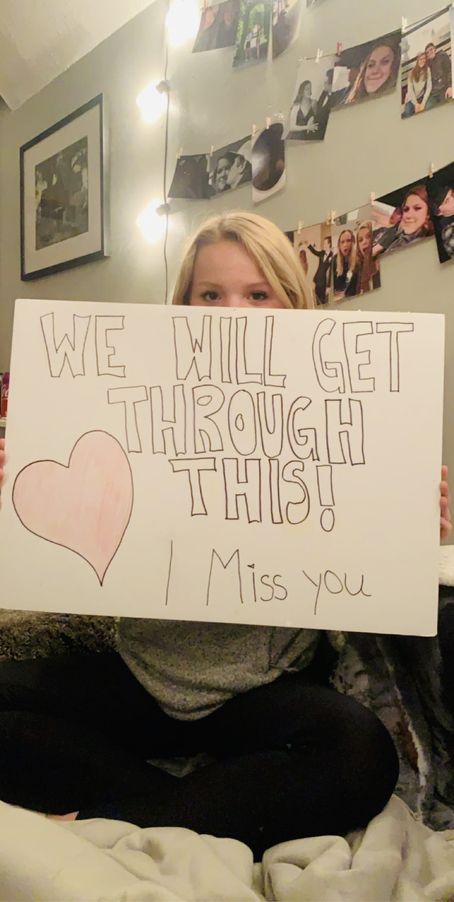 WE WILL GET
THROUGH
THIS!
I Miss you